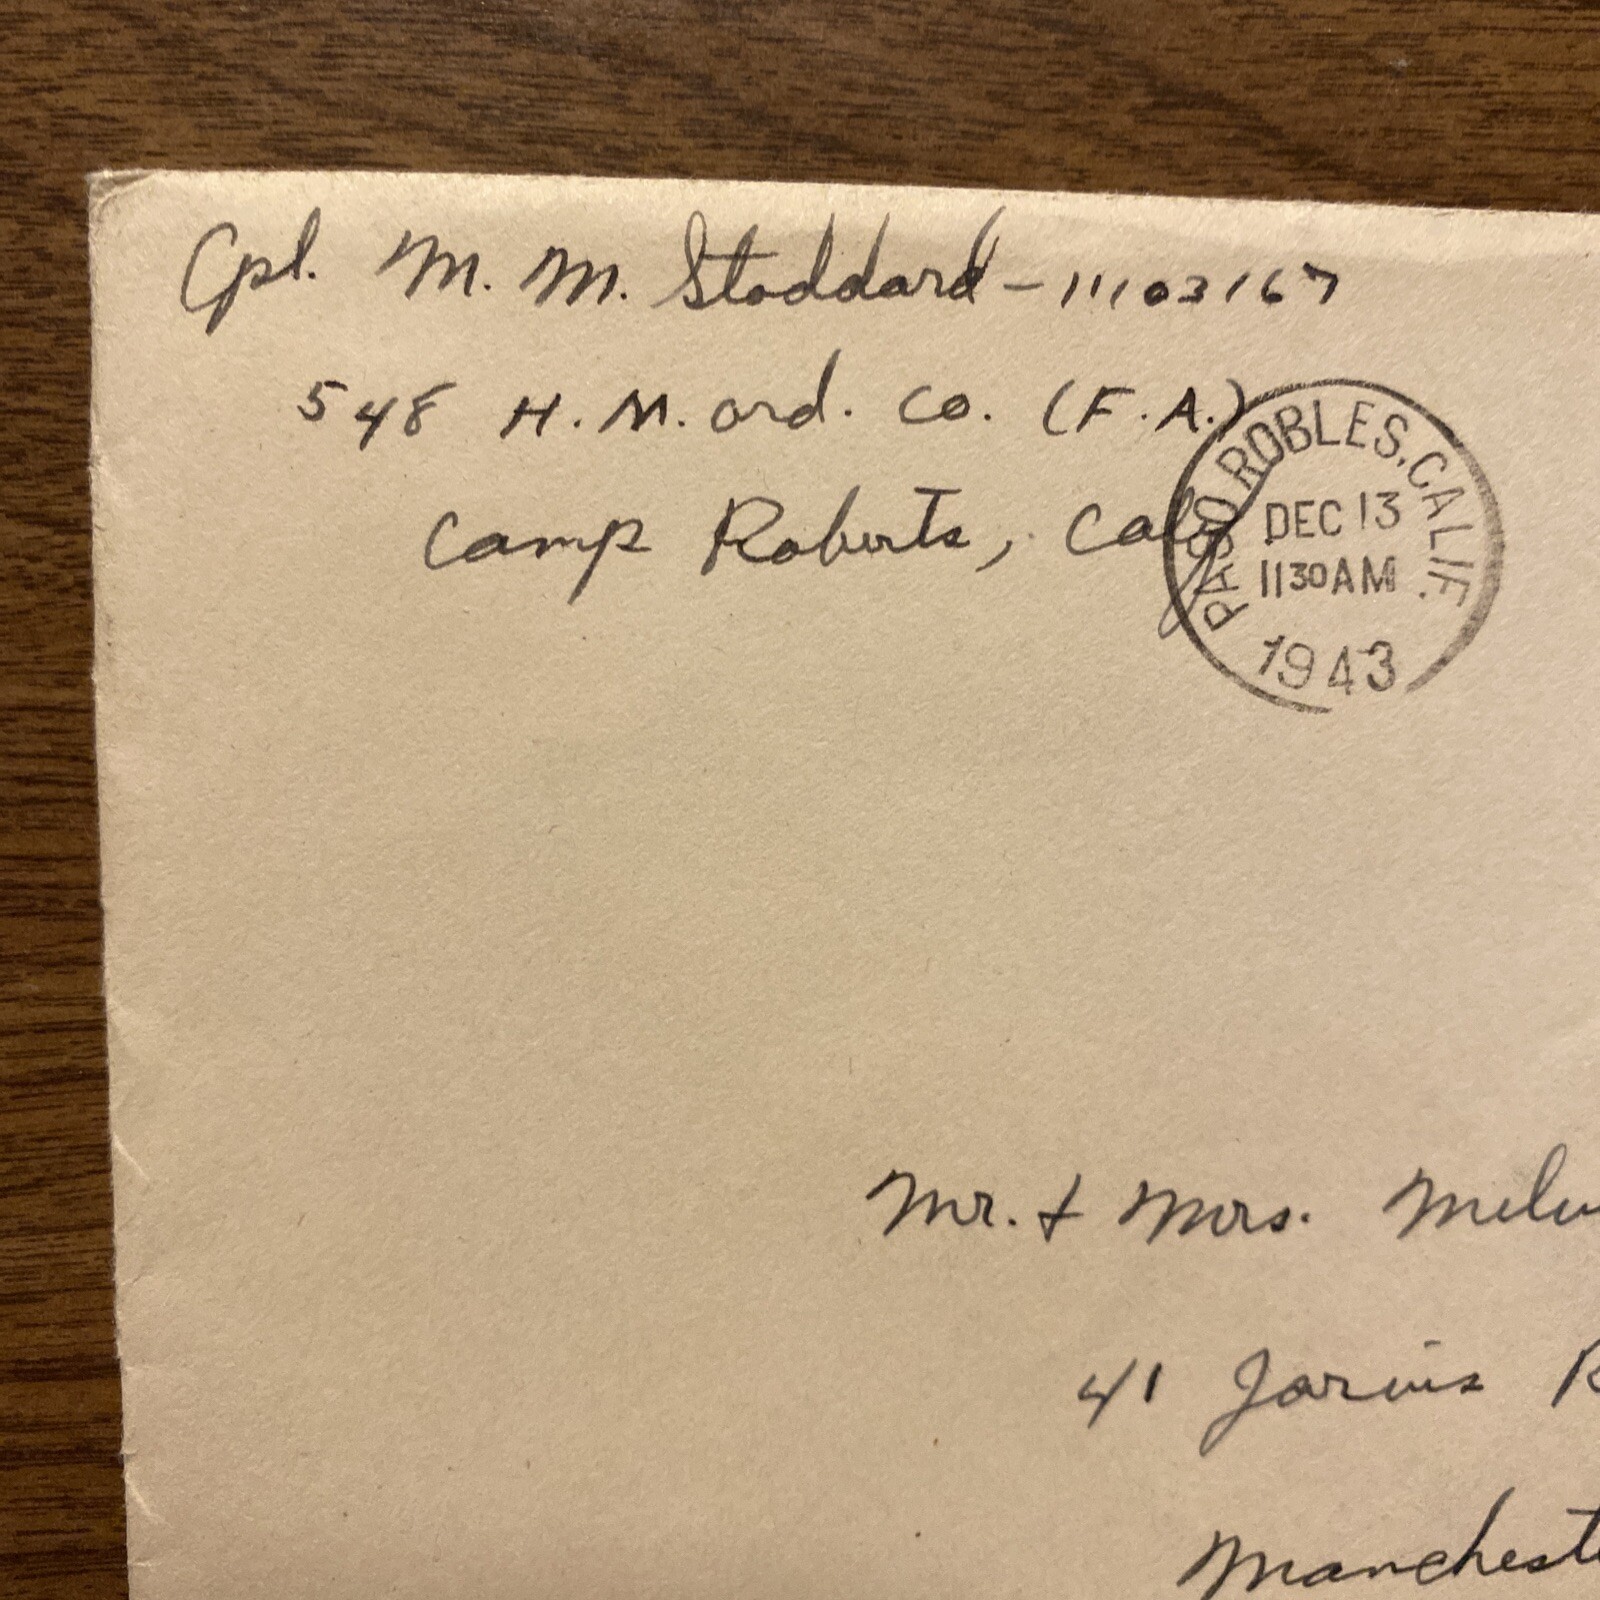 Cpl. M. M. Stoddard - 11103167
548 H. M. ord. Co. (F.A.)
Camp Roberts, Calif
PASO ROBLES, CALIF.
DEC 13
1130 AM
1943
Mr. & Mrs. Melv
41 Jarvis R
Manchest